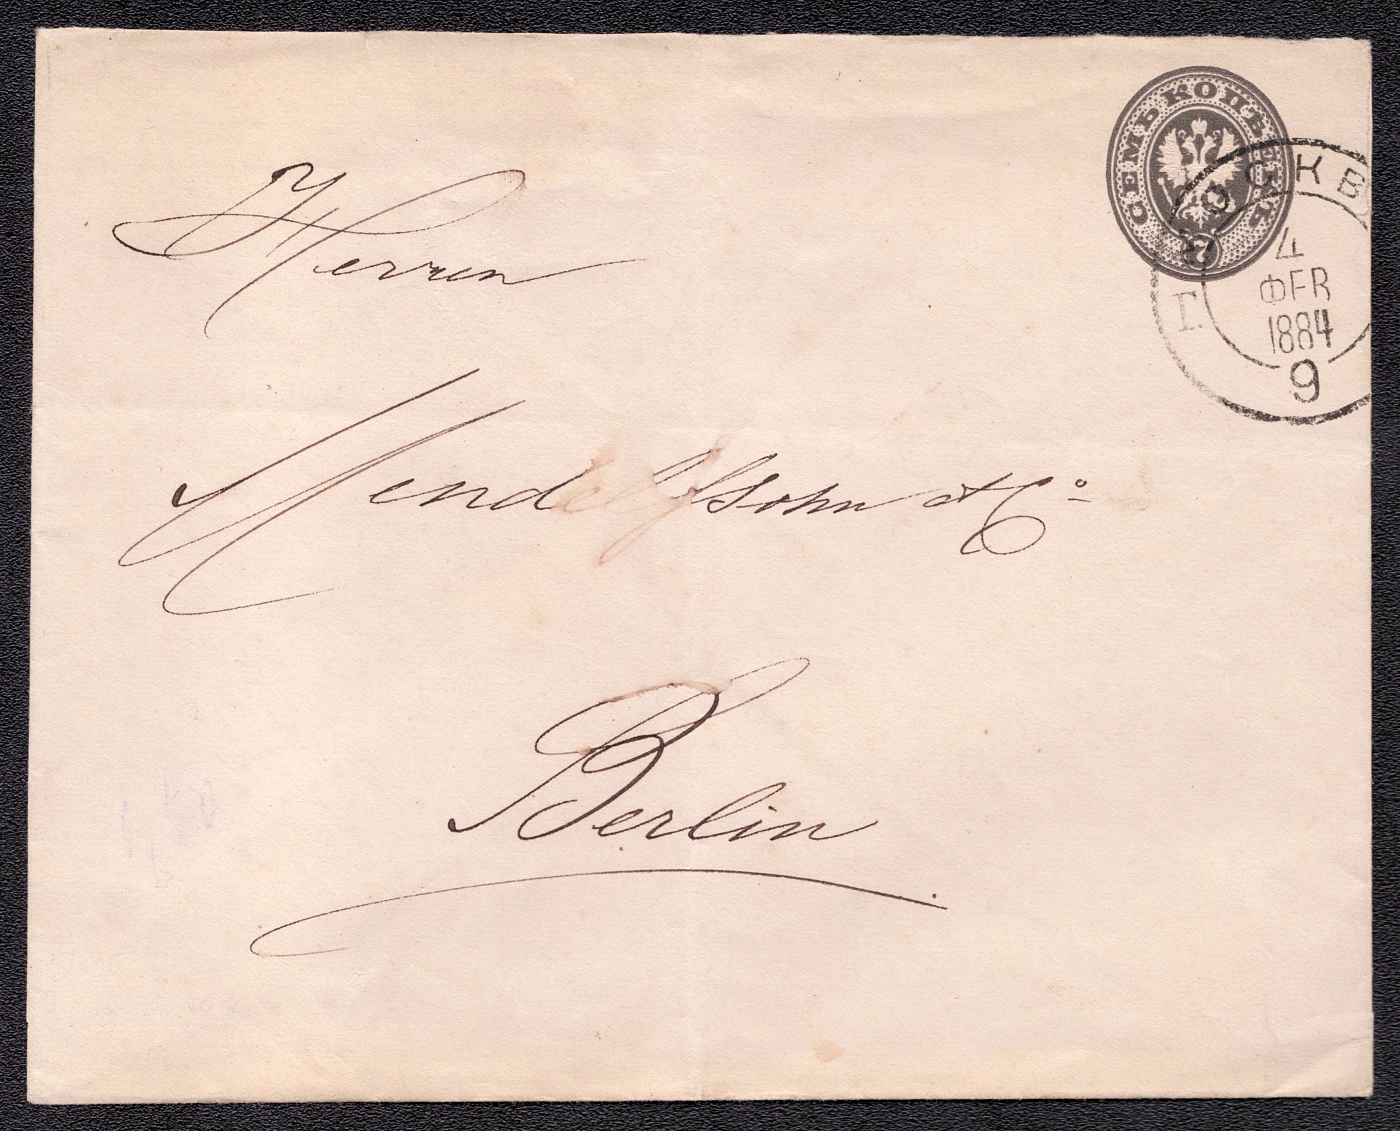 СЕМЬ КОПѢЕКЪ
7
Г. МОСКВ
4
ФЕВ
1884
9
Herren
Mendelssohn & Cº
Berlin